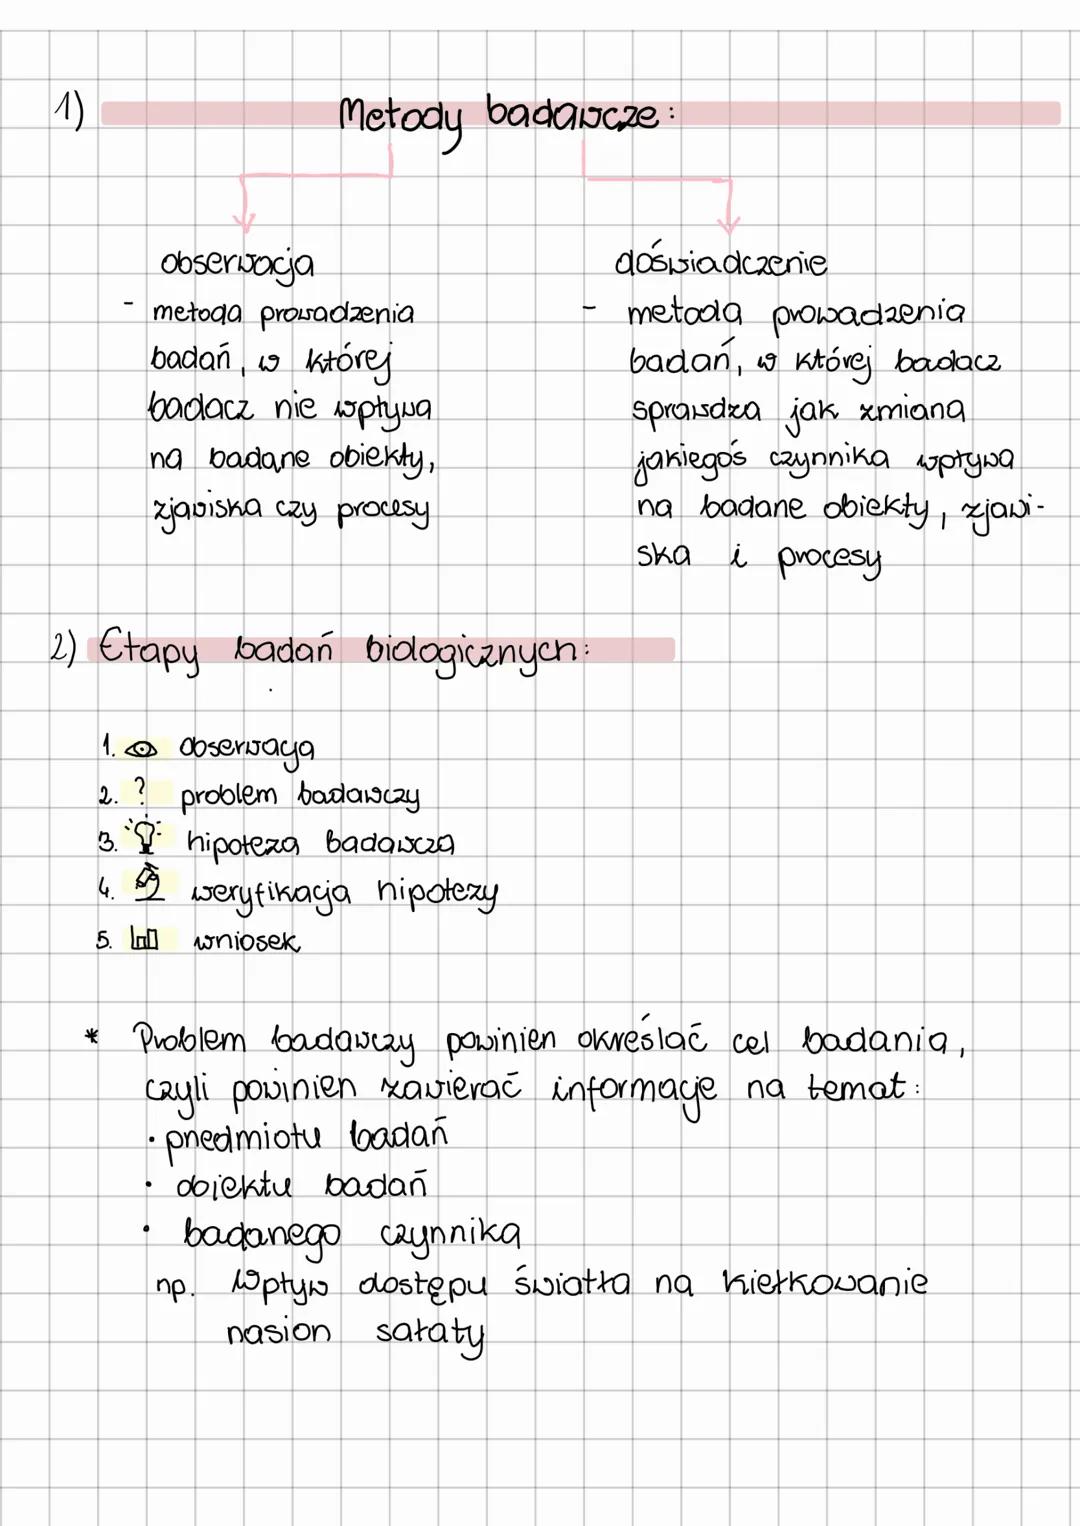 1) Metody badawcze:
obserwacja
- metoda prowadzenia
badań, w której
badacz nie wpływa
na badane obiekty,
zjawiska czy procesy
doświadczenie
- metoda prowadzenia
badań, w której badacz
sprawdza jak zmiana
jakiegoś czynnika wpływa
na badane obiekty, zjawi-
ska i procesy
2) Etapy badań biologicznych:
1. obserwacja
2. ? problem badawczy
3. hipoteza badawcza
4. weryfikacja hipotezy
5. wniosek
* Problem badawczy powinien określać cel badania,
czyli powinien zawierać informacje na temat:
· przedmiotu badań
· obiektu badań
· badanego czynnika
np. Wpływ dostępu światła na kiełkowanie
nasion sałaty